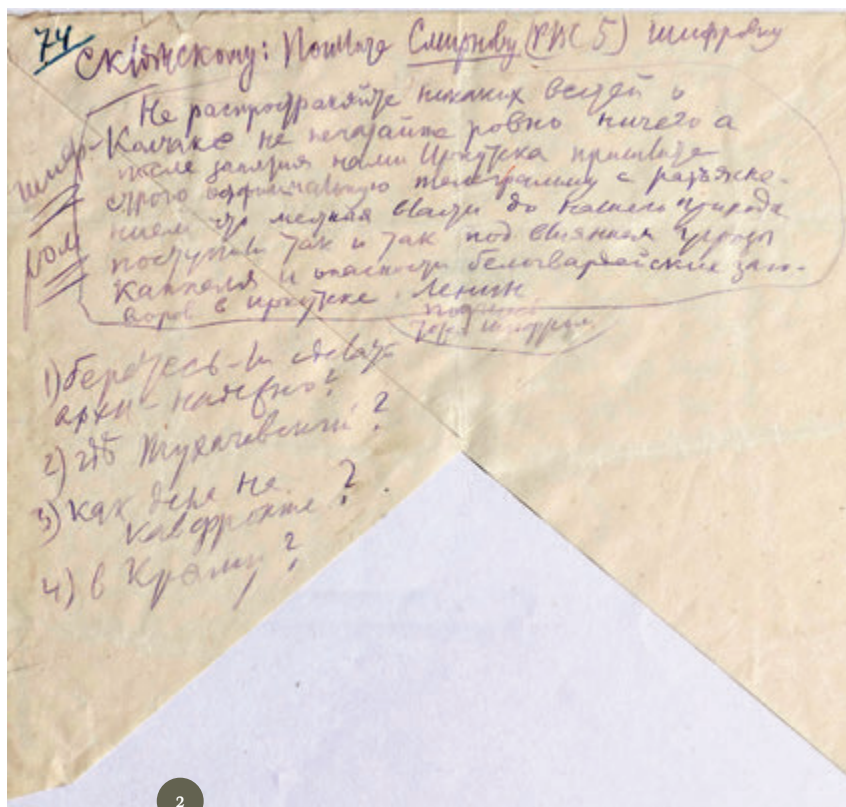 74
Склянскому: Пошлите Смирнову (РВС 5) шифровку
Не распространяйте никаких вестей о
Колчаке не печатайте ровно ничего а
после занятия нами Иркутска пришлите
строго официальную телеграмму с разъясне-
нием что местные власти до нашего прихода
поступали так и так под влиянием угрозы
Каппеля и опасности белогвардейских заго-
воров в Иркутске. Ленин
шиф-
ром
подпись
тоже шифром.
1) беретесь-ли сделать
архи-надежно?
2) где Тухачевский?
3) как дела на
кавфронте?
4) в Крыму?
2